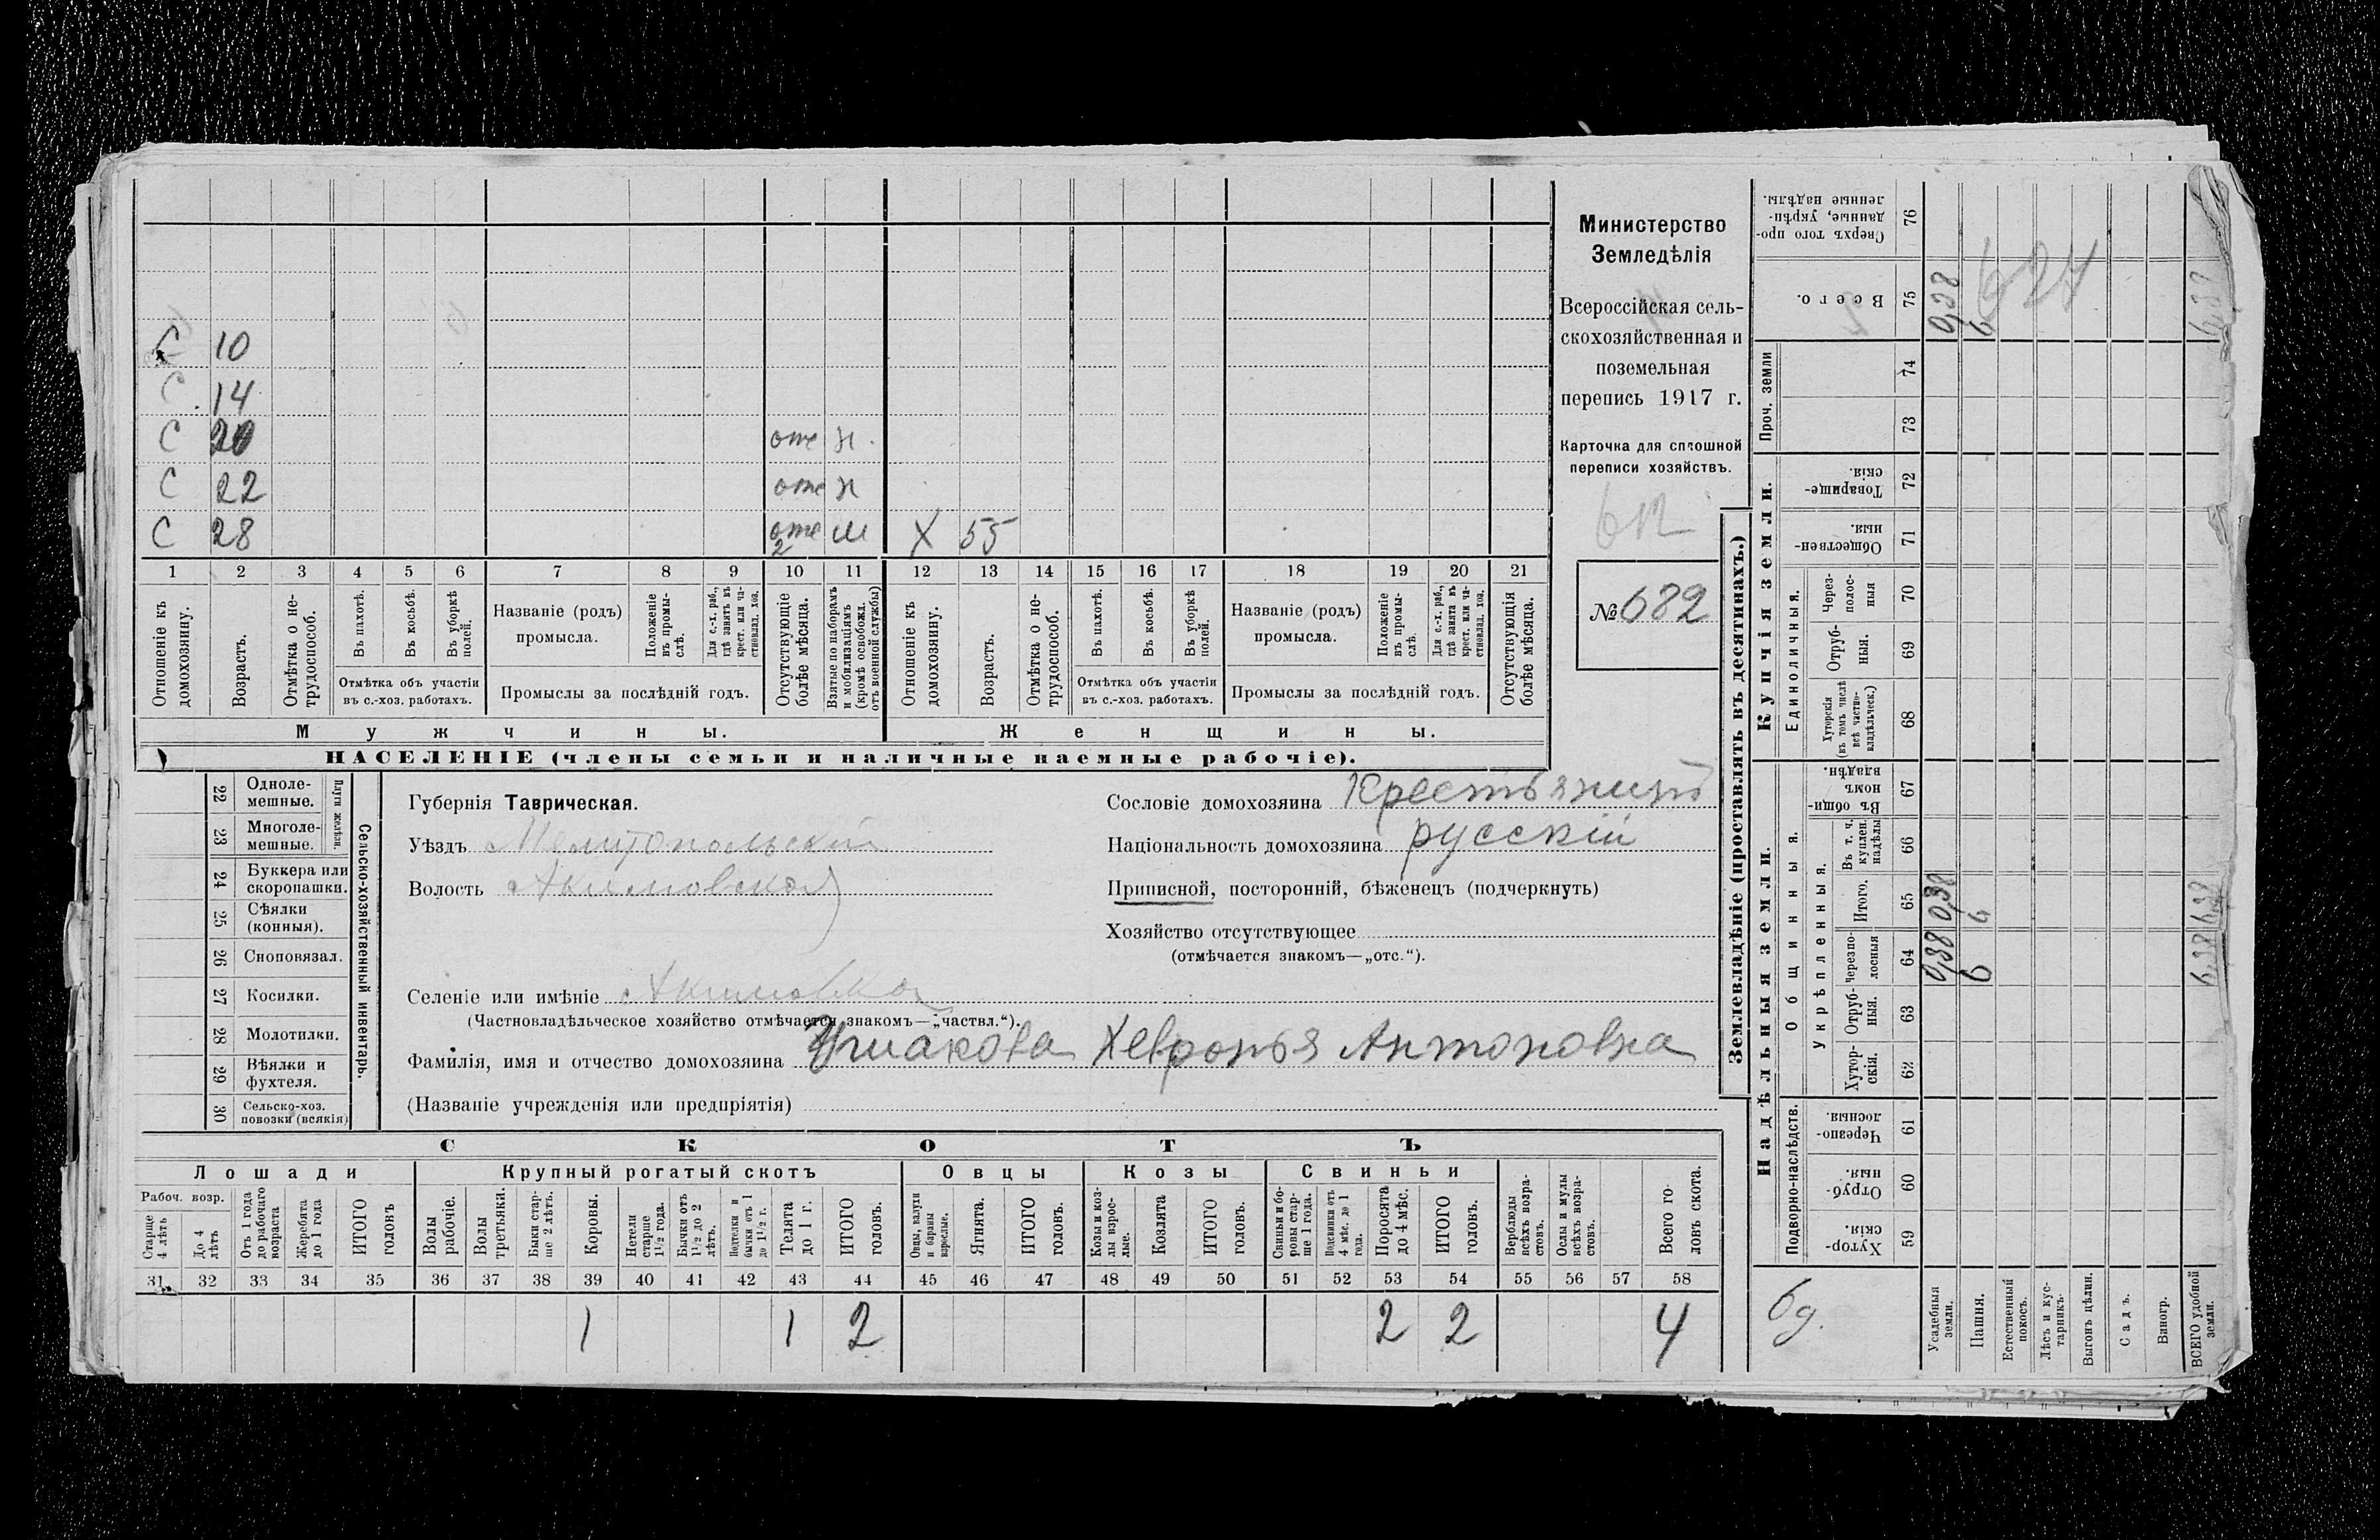 С 10
С 14
С 20 отс н.
С 22 отс н
С 28 отс м Х 55
2
1 2 3 4 5 6 7 8 9 10 11 12 13 14 15 16 17 18 19 20 21
Отношеніе къ домохозяину.
Возрастъ.
Отмѣтка о не-трудоспособ.
Въ пахотѣ.
Въ косьбѣ.
Въ уборкѣ полей.
Отмѣтка объ участіи въ с.-хоз. работахъ.
Названіе (родъ) промысла.
Положеніе въ промы-слѣ.
Для с.-х. раб., гдѣ занятъ въ крест. или ча-стновлад. хоз.
Промыслы за послѣдній годъ.
Отсутствующіе болѣе мѣсяца.
Взятые по наборамъ и мобилизаціямъ (кромѣ освобожд. отъ военной службы)
Отношеніе къ домохозяину.
Возрастъ.
Отмѣтка о не-трудоспособ.
Въ пахотѣ.
Въ косьбѣ.
Въ уборкѣ полей.
Отмѣтка объ участіи въ с.-хоз. работахъ.
Названіе (родъ) промысла.
Положеніе въ промы-слѣ.
Для с.-х. раб., гдѣ занятъ въ крест. или ча-стновлад. хоз.
Промыслы за послѣдній годъ.
Отсутствующія болѣе мѣсяца.
Мужчины. Женщины.
НАСЕЛЕНІЕ (члены семьи и наличные наемные рабочіе).
Министерство
Земледѣлія
Всероссійская сель-
скохозяйственная и
поземельная
перепись 1917 г.
Карточка для сплошной
переписи хозяйствъ.
№ 682
Сельско-хозяйственный инвентарь.
Плуги желѣзн.
22 Одноле-мешные.
23 Многоле-мешные.
24 Буккера или скоропашки.
25 Сѣялки (конныя).
26 Сноповязал.
27 Косилки.
28 Молотилки.
29 Вѣялки и фухтеля.
30 Сельско-хоз. повозки (всякія)
Губернія Таврическая.
Уѣздъ Мелитопольскій
Волость Акимовская
Сословіе домохозяина Крестьянинъ
Національность домохозяина русскій
Приписной, посторонній, бѣженецъ (подчеркнуть)
Хозяйство отсутствующее
(отмѣчается знакомъ—„отс.“).
Селеніе или имѣніе Акимовка
(Частновладѣльческое хозяйство отмѣчается знакомъ—„частвл.“).
Фамилія, имя и отчество домохозяина Хевронья Антоновна
(Названіе учрежденія или предпріятія)
СКОТЪ
Лошади Крупный рогатый скотъ Овцы Козы Свиньи
Рабоч. возр.
Старше 4 лѣтъ
До 4 лѣтъ
Отъ 1 года до рабочаго возраста
Жеребята до 1 года
ИТОГО головъ
Волы рабочіе.
Волы третьяки.
Быки стар-ше 2 лѣтъ.
Коровы.
Нетели старше 1½ года.
Бычки отъ 1½ до 2 лѣтъ.
Подтелки и бычки отъ 1 до 1½ г.
Телята до 1 г.
ИТОГО головъ.
Овцы, валухи и бараны взрослые.
Ягнята.
ИТОГО головъ.
Козы и коз-лы взрос-лые.
Козлята
ИТОГО головъ.
Свиньи и бо-ровы стар-ше 1 года.
Подсвинки отъ 4 мѣс. до 1 года.
Поросята до 4 мѣс.
ИТОГО головъ.
Верблюды всѣхъ возра-стовъ.
Ослы и мулы всѣхъ возра-стовъ.
Всего го-ловъ скота.
31 32 33 34 35 36 37 38 39 40 41 42 43 44 45 46 47 48 49 50 51 52 53 54 55 56 57 58
1 1 2 2 2 4
Землевладѣніе (проставлять въ десятинахъ.)
Надѣльныя земли.
Купчія земли.
Проч. земли
Подворно-наслѣдств.
Общинныя.
Укрѣпленныя.
Единоличныя.
Хутор-скія. 59
Отруб-ныя. 60
Черезпо-лосныя. 61
Хутор-скія. 62
Отруб-ныя. 63
Черезпо-лосныя 64
Итого. 65
Въ т. ч. куплен. надѣлы 66
Въ общи-номъ владѣн. 67
Хуторскія (въ томъ числѣ всѣ частно-владѣльческ.) 68
Отруб-ныя. 69
Через-полос-ныя 70
Обществен-ныя. 71
Товарище-скія. 72
73
74
Всего. 75
Сверхъ того про-данные, укрѣп-ленные надѣлы. 76
Усадебныя земли. 0,38 0,38 0,38
Пашня. 6 6 6
Естественный покосъ.
Лѣсъ и кус-тарникъ.
Выгонъ цѣлин.
Садъ.
Виногр.
ВСЕГО удобной земли. 6,38 6,38 6,38
627